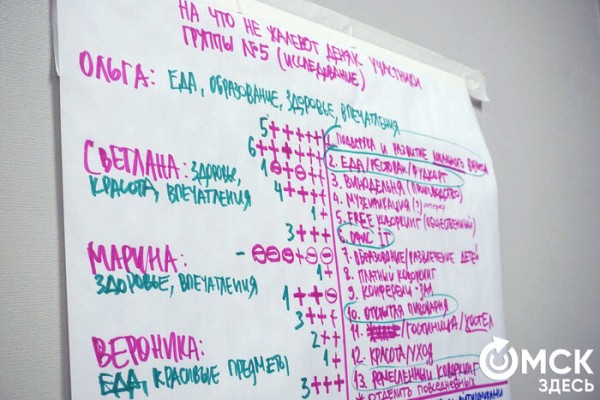 НА ЧТО НЕ ЖАЛЕЮТ ДЕНЯК УЧАСТНИКИ
ГРУППЫ №5 (ИССЛЕДОВАНИЕ)
ОЛЬГА: ЕДА, ОБРАЗОВАНИЕ, ЗДОРОВЬЕ, ВПЕЧАТЛЕНИЯ
СВЕТЛАНА: ЗДОРОВЬЕ,
КРАСОТА, ВПЕЧАТЛЕНИЯ
МАРИНА:
ЗДОРОВЬЕ, ВПЕЧАТЛЕНИЯ
ВЕРОНИКА:
ЕДА, КРАСИВЫЕ ПРЕДМЕТЫ
5 +++++ 1. ПОДДЕРЖКА И РАЗВИТИЕ ЛОКАЛЬНОГО
6 ++++++ 2. ЕДА/РЕСТОРАН/ФУДКОРТ
1 ⊖+⊖+ 3. ВИНОДЕЛЬНЯ (ПРОИЗВОДСТВО)
4 ++++ 4. МУЗЕИФИКАЦИЯ (?)
1 + 5. FREE КОВОРКИНГ (ОБЩЕСТВЕННЫЙ)
3 +++ 6. ОФИС IT
- ⊖⊖+⊖⊖ 7. ОБРАЗОВАНИЕ/РАЗВЛЕЧЕНИЕ ДЕТЕЙ
1 + 8. ПЛАТНЫЙ КОВОРКИНГ
1 ++⊖ 9. КОНФЕРЕНЦ-ЗАЛ
3 +++ 10. ОТКРЫТАЯ ПИВОВАРНЯ
2 ++ 11. /ГОСТИНИЦА/ХОСТЕЛ
1 + 12. КРАСОТА/УХОД
3 +++ 13. РЕМЕСЛЕННЫЙ КОВОРКИНГ
* ОТДЕЛИТЬ ПОВСЕДНЕВНЫХ
ОМСК
ЗДЕСЬ